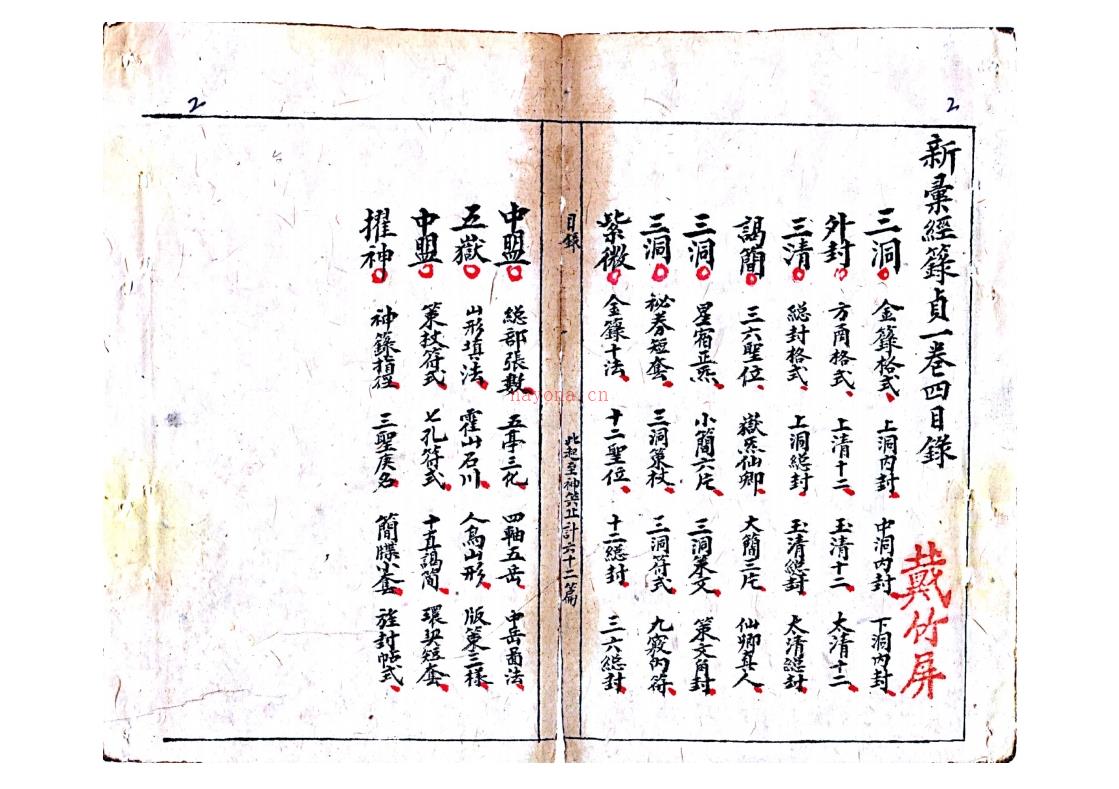 2
2
新彙經籙貞一卷四目錄
戴竹屏
三洞 金籙格式、 上洞內封、 中洞內封 下洞內封、
外封 方甬格式、 上清十二、 玉清十二、 太清十二、
三清 総封格式、 上洞総封、 玉清総封 太清総封、
謁簡 三六聖位、 嶽炁仙卿、 大簡三片、 仙卿真人
三洞 星宿正炁、 小簡六片、 三洞策文、 策文角封
三洞 祕券短套、 三洞策杖、 三洞符式、 九竅內符、
紫微 金籙十法、 十二聖位、 十二総封、 三六総封、
目錄 此起至神共止計六十二篇
中盟 総部張數、 五亭三化、 四軸五岳、 中岳啚法、
五嶽 山形填法、 霍山石川、 人鳥山形、 版策三樣、
中盟 策杖符式、 七孔符式、 十直謁簡、 環契短套、
擢神 神籙指徑、 三聖庚名 簡牒小套、 旋封帖式、
nayona.cn